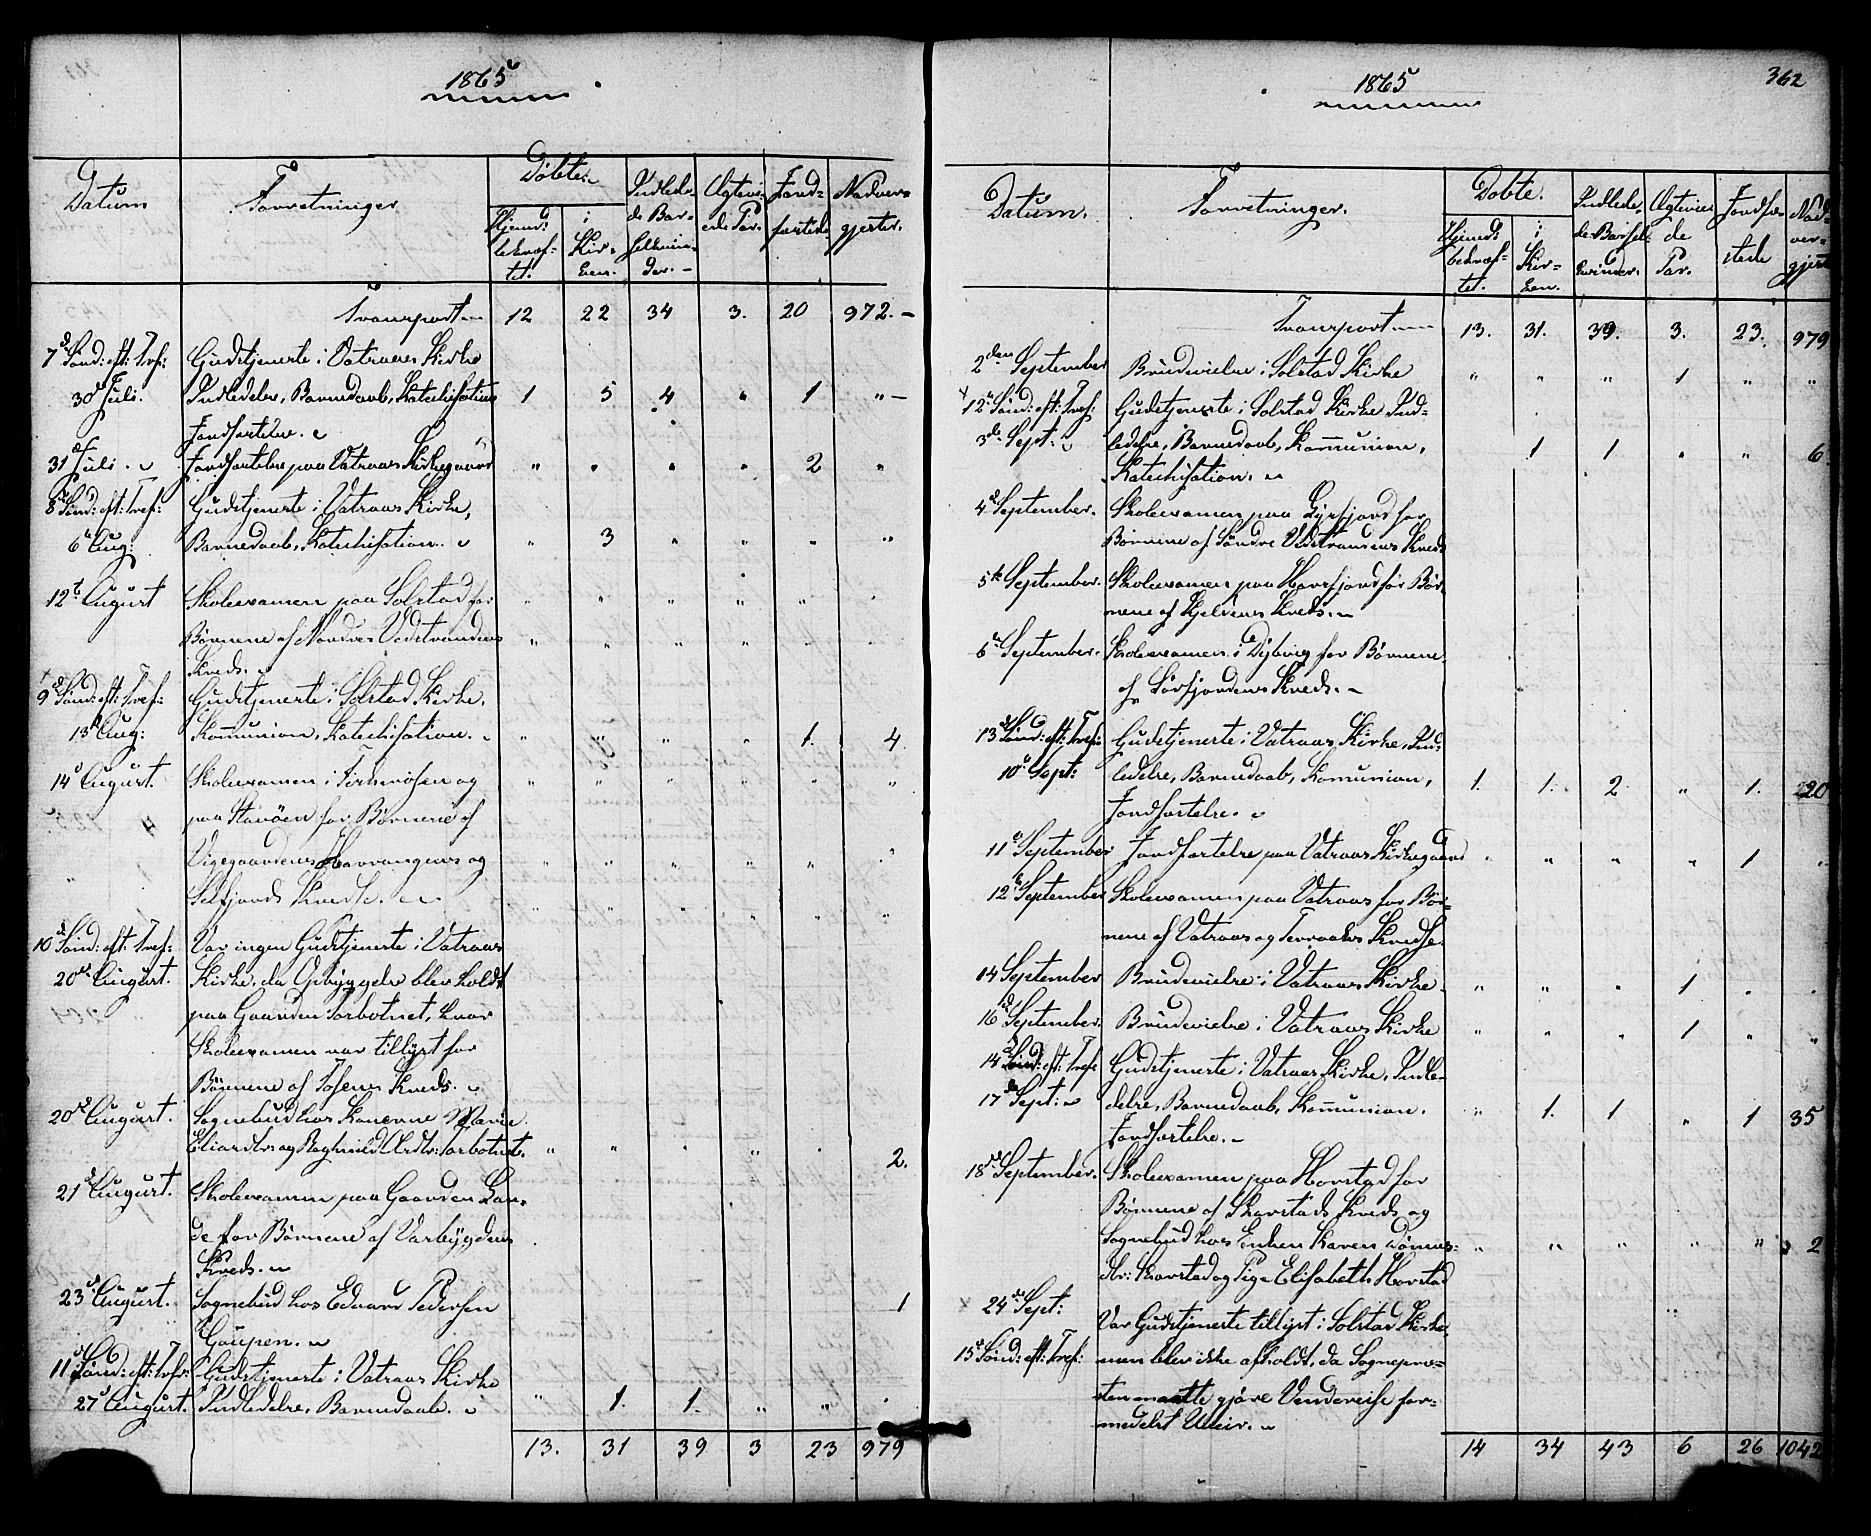 1865
Datum
Forretninger
Døbte.
Hjemd: bekræf-tet.
i Kir-ken.
Indlede-de Bar-selkvin-der.
Ægtevi-ede Par.
Jord-fæstede
Nadver-gjester.
Transport 12 22 34 3. 20 972.
7de Sønd: eft: Tref: Gudstjeneste i Vatraas Kirke
30d Juli. Indledelse, Barnedaab, Katechisation 1 5 4 " 1 "
Jordfæstelse.
31 Juli. Jordfæstelse paa Vatraas Kirkegaard " " " " 2 "
8de Sønd: eft: Tref: Gudstjeneste i Vatraas Kirke,
6te Aug: Barnedaab, Katechisation. " 3 " " " "
12te August Skoleexamen paa Solstad for
Børnene af Nordre Vedstrandens
Kreds.
9de Sønd: eft: Tref: Gudstjeneste i Solstad Kirke.
13d Aug: Kommunion, Katechisation. " " " " 1. 4.
14d August. Skoleexamen i og
paa Havöen for Børnene af
og
Selfjords Kredse.
10de Sønd: eft: Tref: Var ingen Gudstjeneste i Vatraas
20de August. Kirke, da Opbyggelse blev holdt
paa Gaarden Sørbotnet, hvor
Skoleexamen var tillyst for
Børnene af Tosens Kreds.
20de August. Sognebud hos Konerne Marie
Eliasdtr: og Raghnild Arsdtr: Sørbotnet. " " " " " 2.
21d August. Skoleexamen paa Gaarden Lan-
de for Børnene af Vasbygdens
Kreds.
23de August. Sognebud hos Edvard Pedersen 1
Gaupen.
11de Sønd: eft: Tref: Gudstjeneste i Vatraas Kirke
27d August. Indledelse, Barnedaab. " 1. 1. " " "
13. 31 39 3 23 979
1865
362
Datum.
Forretninger.
Døbte.
Hjemd: bekræf-tet.
i Kir-ken.
Indlede-de Barsel-kvinder.
Ægtevie-de Par.
Jordfæ-stede
Nad-ver-gjest
Transport 13. 31. 39. 3. 23. 979
2den September Brudevielse i Solstad Kirke " " " 1 " "
12te Sønd: eft: Tref: Gudstjeneste i Solstad Kirke Ind-
3de Sept: ledelse, Barnedaab, Kommunion, 1 1 " " 6.
Katechisation.
4de September. Skoleexamen paa for
Børnene af Søndre Vedstrandens Kreds
5te September. Skoleexamen paa Horsfjord for Bør-
nene af Kreds.
6te September. Skoleexamen i Dybvig for Børnene
af Sørfjordens Kreds.
13de Sønd: eft: Tref: Gudstjeneste i Vatraas Kirke, Ind-
10d Sept: ledelse, Barnedaab, Komunion, 1. 1. 2. " 1. 20
Jordfæstelse.
11te September Jordfæstelse paa Vatraas Kirkegaard " " " " 1 "
12te September Skoleexamen paa Vatraas for Bør-
nene af Vatraas og Terraaks Kredse
14 September Brudevielse i Vatraas Kirke. " " " 1 " "
16d September. Brudevielse i Vatraas Kirke " " " 1 " "
14de Sønd: eft: Tref: Gudstjeneste i Vatraas Kirke, Indle-
17de Sept: delse, Barnedaab, Kommunion. " 1. 1 " 1 35
Jordfæstelse.
18de September. Skoleexamen paa Horstad for
Børnene af Skarstads Kreds og
Sognebud hos Enken Karen Jönnes- " " " " " 2
dtr: Skarstad og Pige Elisabeth Horstad
24de Sept: Var Gudstjeneste tillyst i Solstad Kirke,
15de Sønd: eft: Tref: men blev ikke afholdt, da Sognepræ-
sten maatte gjöre Vendereise for-
medelst Uveir.
14 34 43 6 26 1042